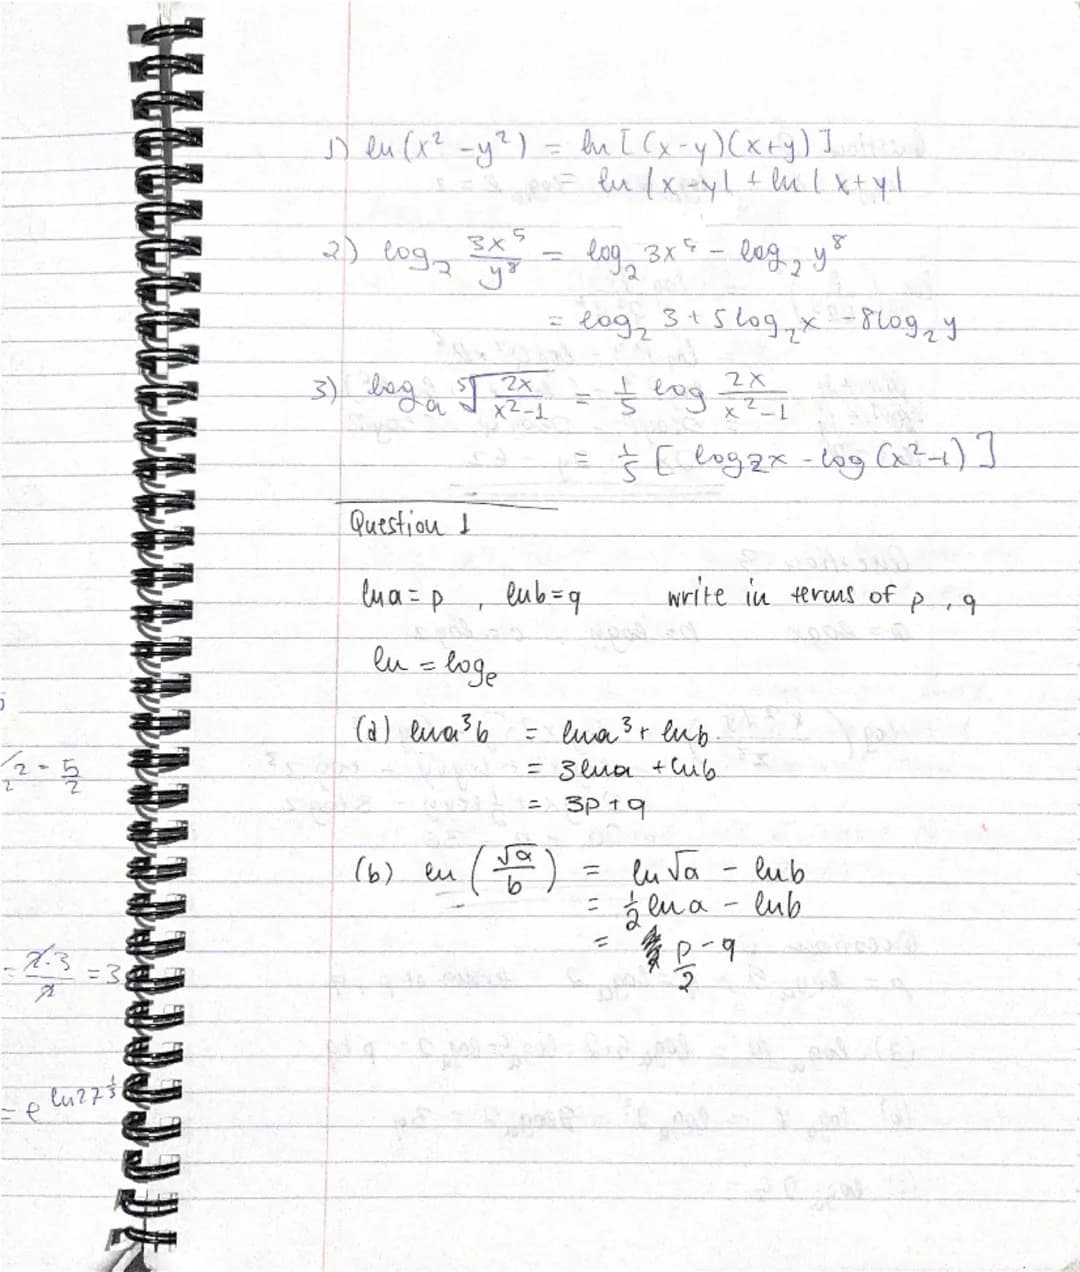 1) ln(x² -y²) = ln[(x-y)(x+y)]
ln|x-y| + ln|x+y|
2) log₂ 3x⁵/y⁸ = log₂ 3x⁵ - log₂ y⁸
= log₂ 3 + 5 log₂ x - 8 log₂ y
3) logₐ ⁵√(2x/(x²-1)) = 1/5 log 2x/(x²-1)
= 1/5 [log 2x - log (x²-1)]
Question 1
ln a = p , ln b = q write in terms of p , q
ln = logₑ
(a) ln a³b = ln a³ + ln b
= 3 ln a + ln b
= 3p + q
(b) ln (√a/b) = ln √a - ln b
= 1/2 ln a - ln b
= p/2 - q
/2 = 5/2
= 2·3/2 = 3
= e^ln 27^1/3